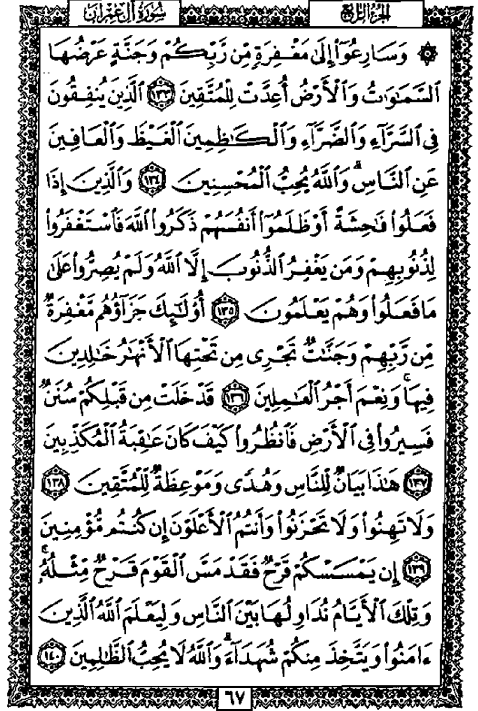 الجزء الرابع
سورة آل عمران
۞ وَسَارِعُوٓا۟ إِلَىٰ مَغْفِرَةٍ مِّن رَّبِّكُمْ وَجَنَّةٍ عَرْضُهَا
ٱلسَّمَٰوَٰتُ وَٱلْأَرْضُ أُعِدَّتْ لِلْمُتَّقِينَ ١٣٣ ٱلَّذِينَ يُنفِقُونَ
فِى ٱلسَّرَّآءِ وَٱلضَّرَّآءِ وَٱلْكَٰظِمِينَ ٱلْغَيْظَ وَٱلْعَافِينَ
عَنِ ٱلنَّاسِ ۗ وَٱللَّهُ يُحِبُّ ٱلْمُحْسِنِينَ ١٣٤ وَٱلَّذِينَ إِذَا
فَعَلُوا۟ فَٰحِشَةً أَوْ ظَلَمُوٓا۟ أَنفُسَهُمْ ذَكَرُوا۟ ٱللَّهَ فَٱسْتَغْفَرُوا۟
لِذُنُوبِهِمْ وَمَن يَغْفِرُ ٱلذُّنُوبَ إِلَّا ٱللَّهُ وَلَمْ يُصِرُّوا۟ عَلَىٰ
مَا فَعَلُوا۟ وَهُمْ يَعْلَمُونَ ١٣٥ أُو۟لَٰٓئِكَ جَزَآؤُهُم مَّغْفِرَةٌ
مِّن رَّبِّهِمْ وَجَنَّٰتٌ تَجْرِى مِن تَحْتِهَا ٱلْأَنْهَٰرُ خَٰلِدِينَ
فِيهَا ۚ وَنِعْمَ أَجْرُ ٱلْعَٰمِلِينَ ١٣٦ قَدْ خَلَتْ مِن قَبْلِكُمْ سُنَنٌ
فَسِيرُوا۟ فِى ٱلْأَرْضِ فَٱنظُرُوا۟ كَيْفَ كَانَ عَٰقِبَةُ ٱلْمُكَذِّبِينَ
١٣٧ هَٰذَا بَيَانٌ لِّلنَّاسِ وَهُدًى وَمَوْعِظَةٌ لِّلْمُتَّقِينَ ١٣٨
وَلَا تَهِنُوا۟ وَلَا تَحْزَنُوا۟ وَأَنتُمُ ٱلْأَعْلَوْنَ إِن كُنتُم مُّؤْمِنِينَ
١٣٩ إِن يَمْسَسْكُمْ قَرْحٌ فَقَدْ مَسَّ ٱلْقَوْمَ قَرْحٌ مِّثْلُهُۥ ۚ
وَتِلْكَ ٱلْأَيَّامُ نُدَاوِلُهَا بَيْنَ ٱلنَّاسِ وَلِيَعْلَمَ ٱللَّهُ ٱلَّذِينَ
ءَامَنُوا۟ وَيَتَّخِذَ مِنكُمْ شُهَدَآءَ ۗ وَٱللَّهُ لَا يُحِبُّ ٱلظَّٰلِمِينَ ١٤٠
٦٧